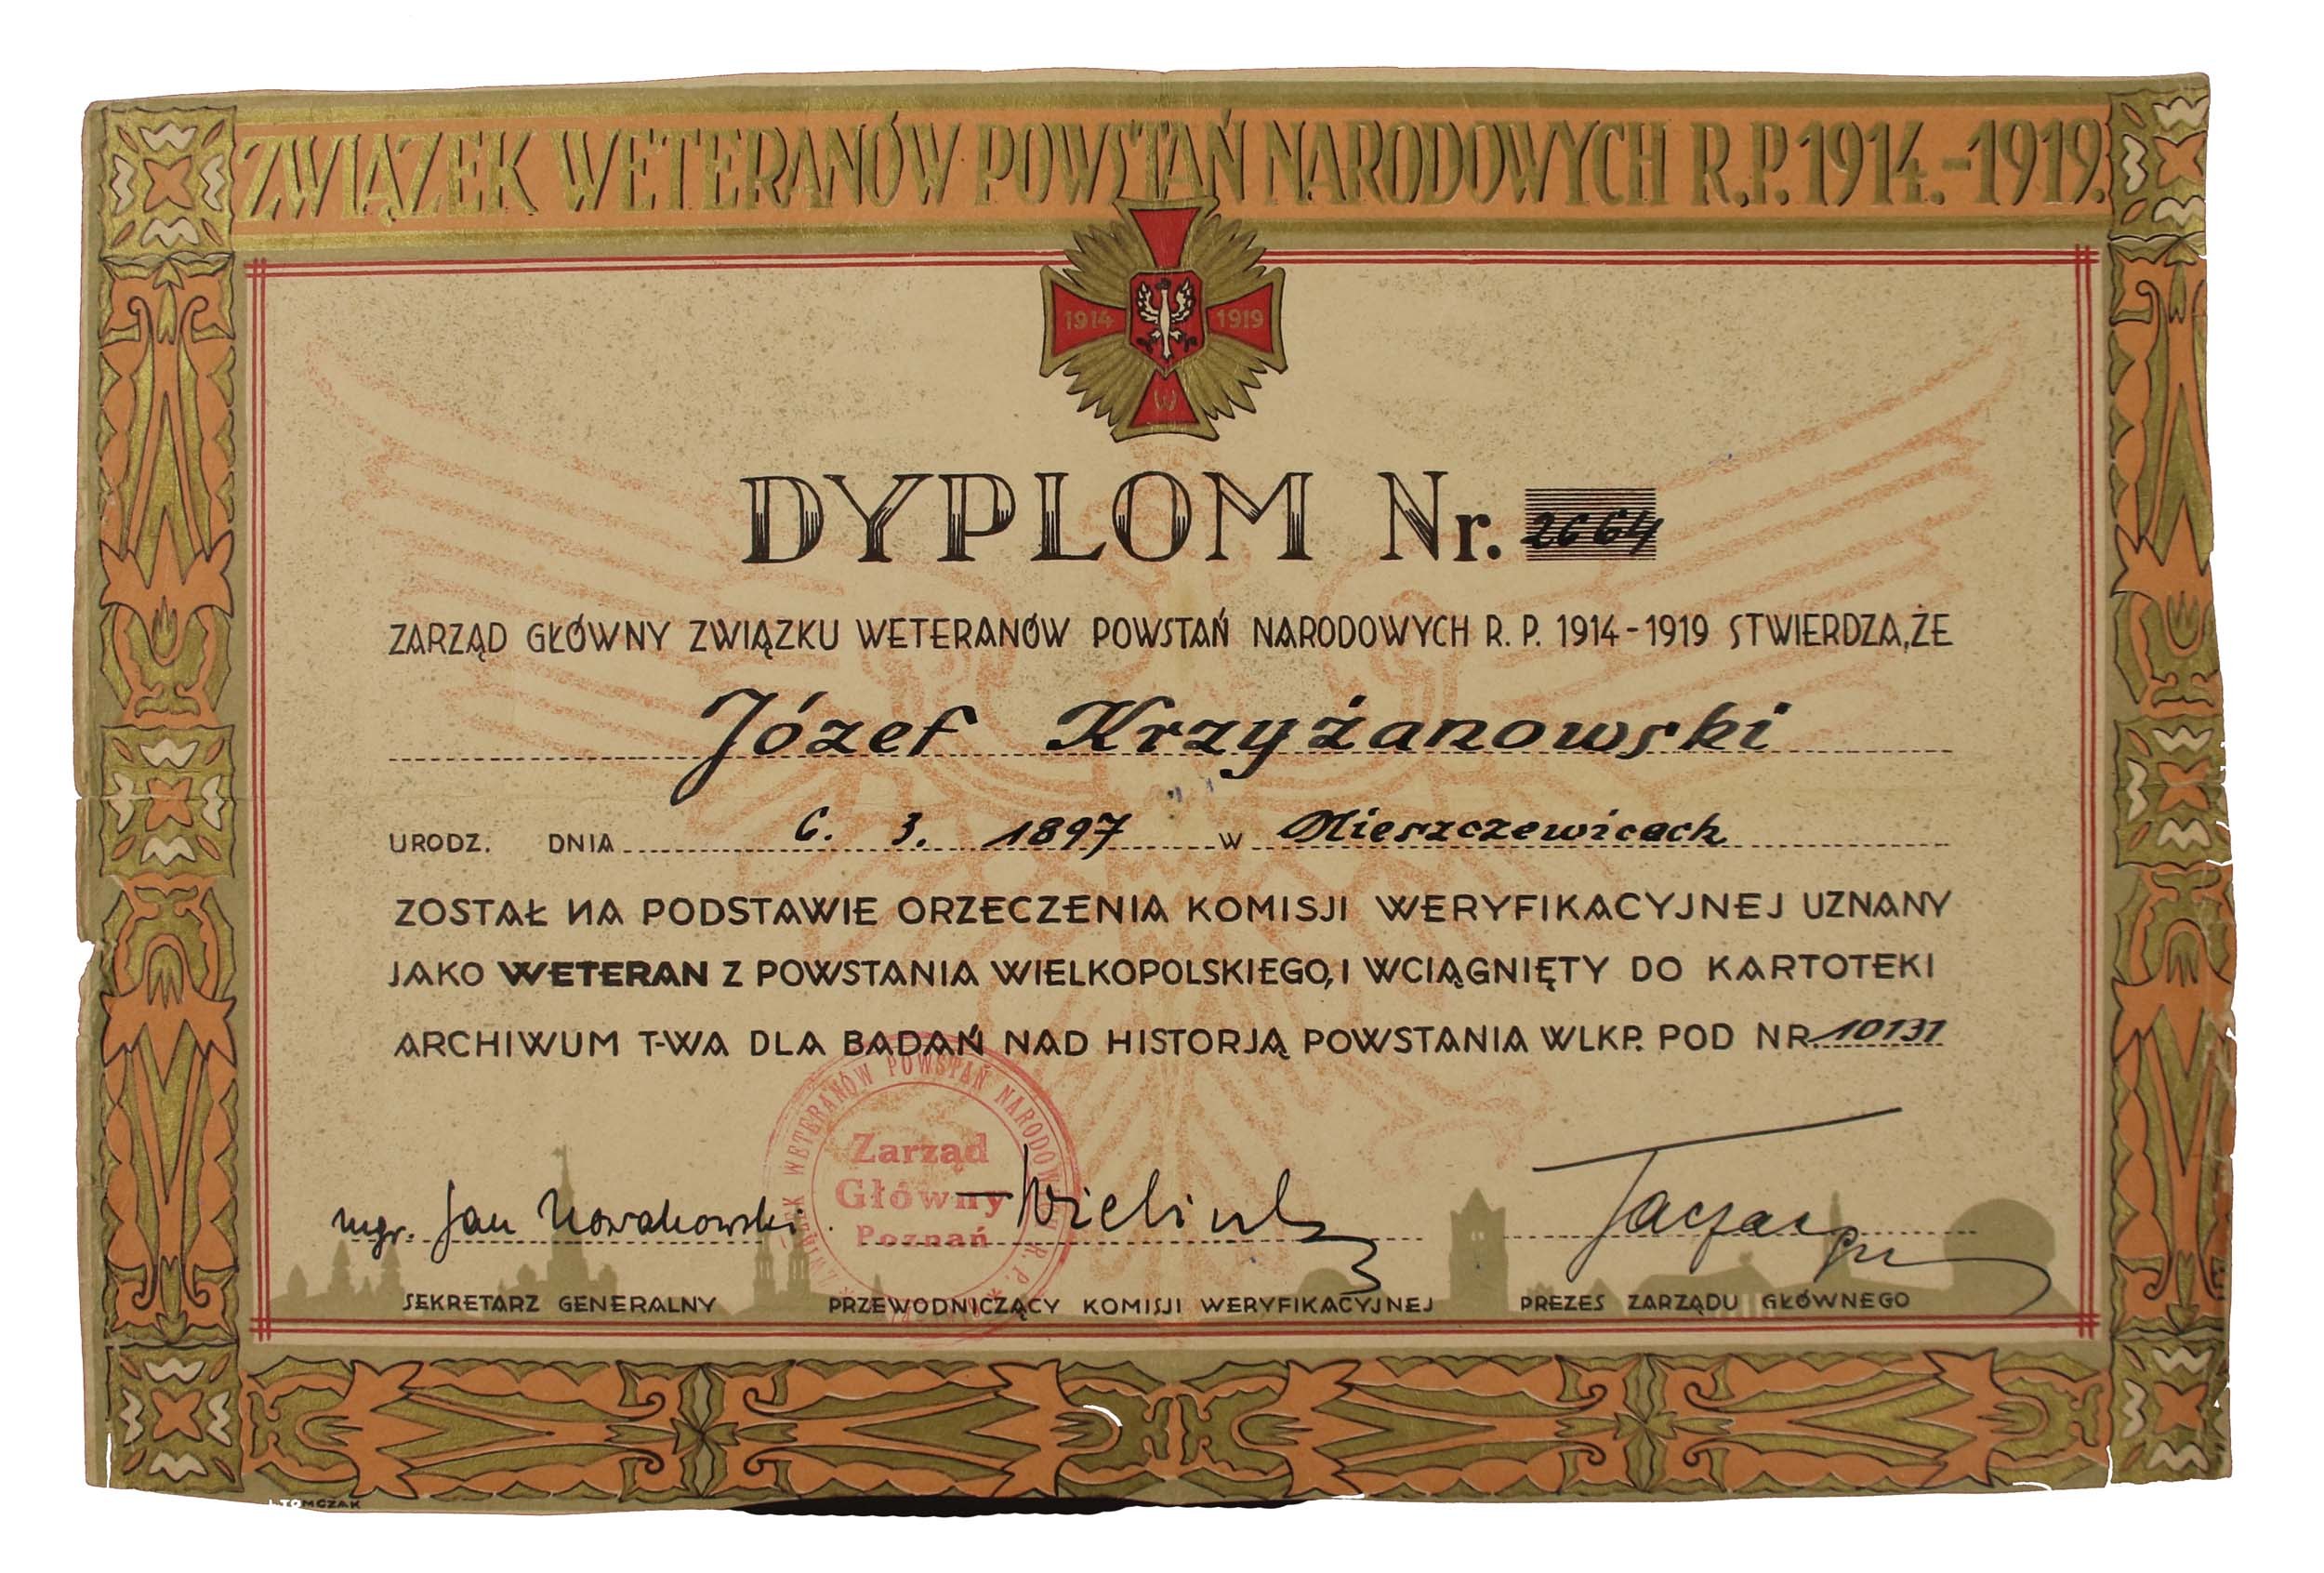 ZWIĄZEK WETERANÓW POWSTAŃ NARODOWYCH R.P. 1914.-1919.
1914 1919
W
DYPLOM Nr. 2664
ZARZĄD GŁÓWNY ZWIĄZKU WETERANÓW POWSTAŃ NARODOWYCH R. P. 1914-1919 STWIERDZA, ŻE
Józef Krzyżanowski
URODZ. DNIA 6. 3. 1897 W Nieszczewicach
ZOSTAŁ NA PODSTAWIE ORZECZENIA KOMISJI WERYFIKACYJNEJ UZNANY
JAKO WETERAN Z POWSTANIA WIELKOPOLSKIEGO, I WCIĄGNIĘTY DO KARTOTEKI
ARCHIWUM T-WA DLA BADAŃ NAD HISTORJĄ POWSTANIA WLKP. POD NR. 10131
ZWIĄZEK WETERANÓW POWSTAŃ NARODOWYCH R. P.
Zarząd
Główny
Poznań
mgr. Jan Nowakowski
SEKRETARZ GENERALNY PRZEWODNICZĄCY KOMISJI WERYFIKACYJNEJ PREZES ZARZĄDU GŁÓWNEGO
TOMCZAK